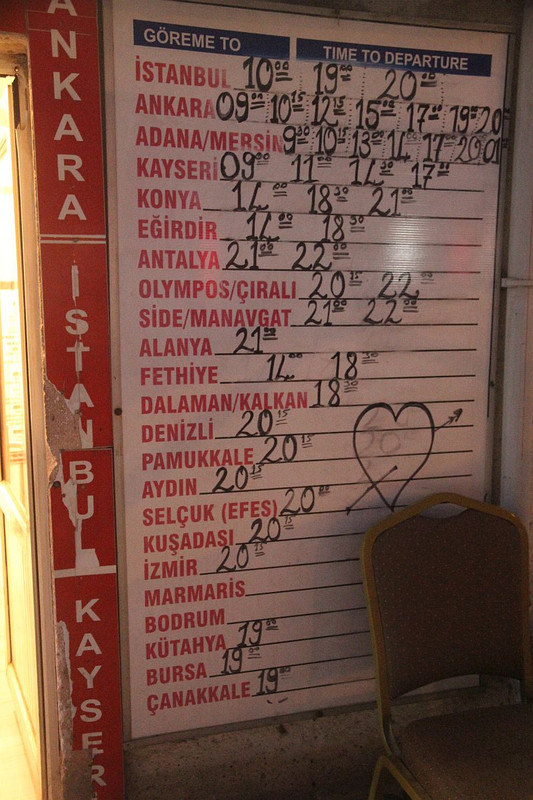 ANKARA
İSTANBUL
KAYSERİ
GÖREME TO TIME TO DEPARTURE
İSTANBUL 10 00 19 00 20
ANKARA 09 10 15 12 15 00 17 00 19 20
ADANA/MERSİN 9 30 10 15 13 00 14 17 20 01
KAYSERİ 09 00 11 00 14 30 17
KONYA 14 00 18 30 21 00
EĞİRDİR 14 00 18 30
ANTALYA 21 00 22 00
OLYMPOS/ÇIRALI 20 22 00
SİDE/MANAVGAT 21 00 22 00
ALANYA 21
FETHİYE 14 00 18 30
DALAMAN/KALKAN 18 30
DENİZLİ 20 15
PAMUKKALE 20 15
AYDIN 20 15
SELÇUK (EFES) 20
KUŞADASI 20 15
İZMİR 20 15
MARMARİS
BODRUM
KÜTAHYA 19 00
BURSA 19 00
ÇANAKKALE 19 00